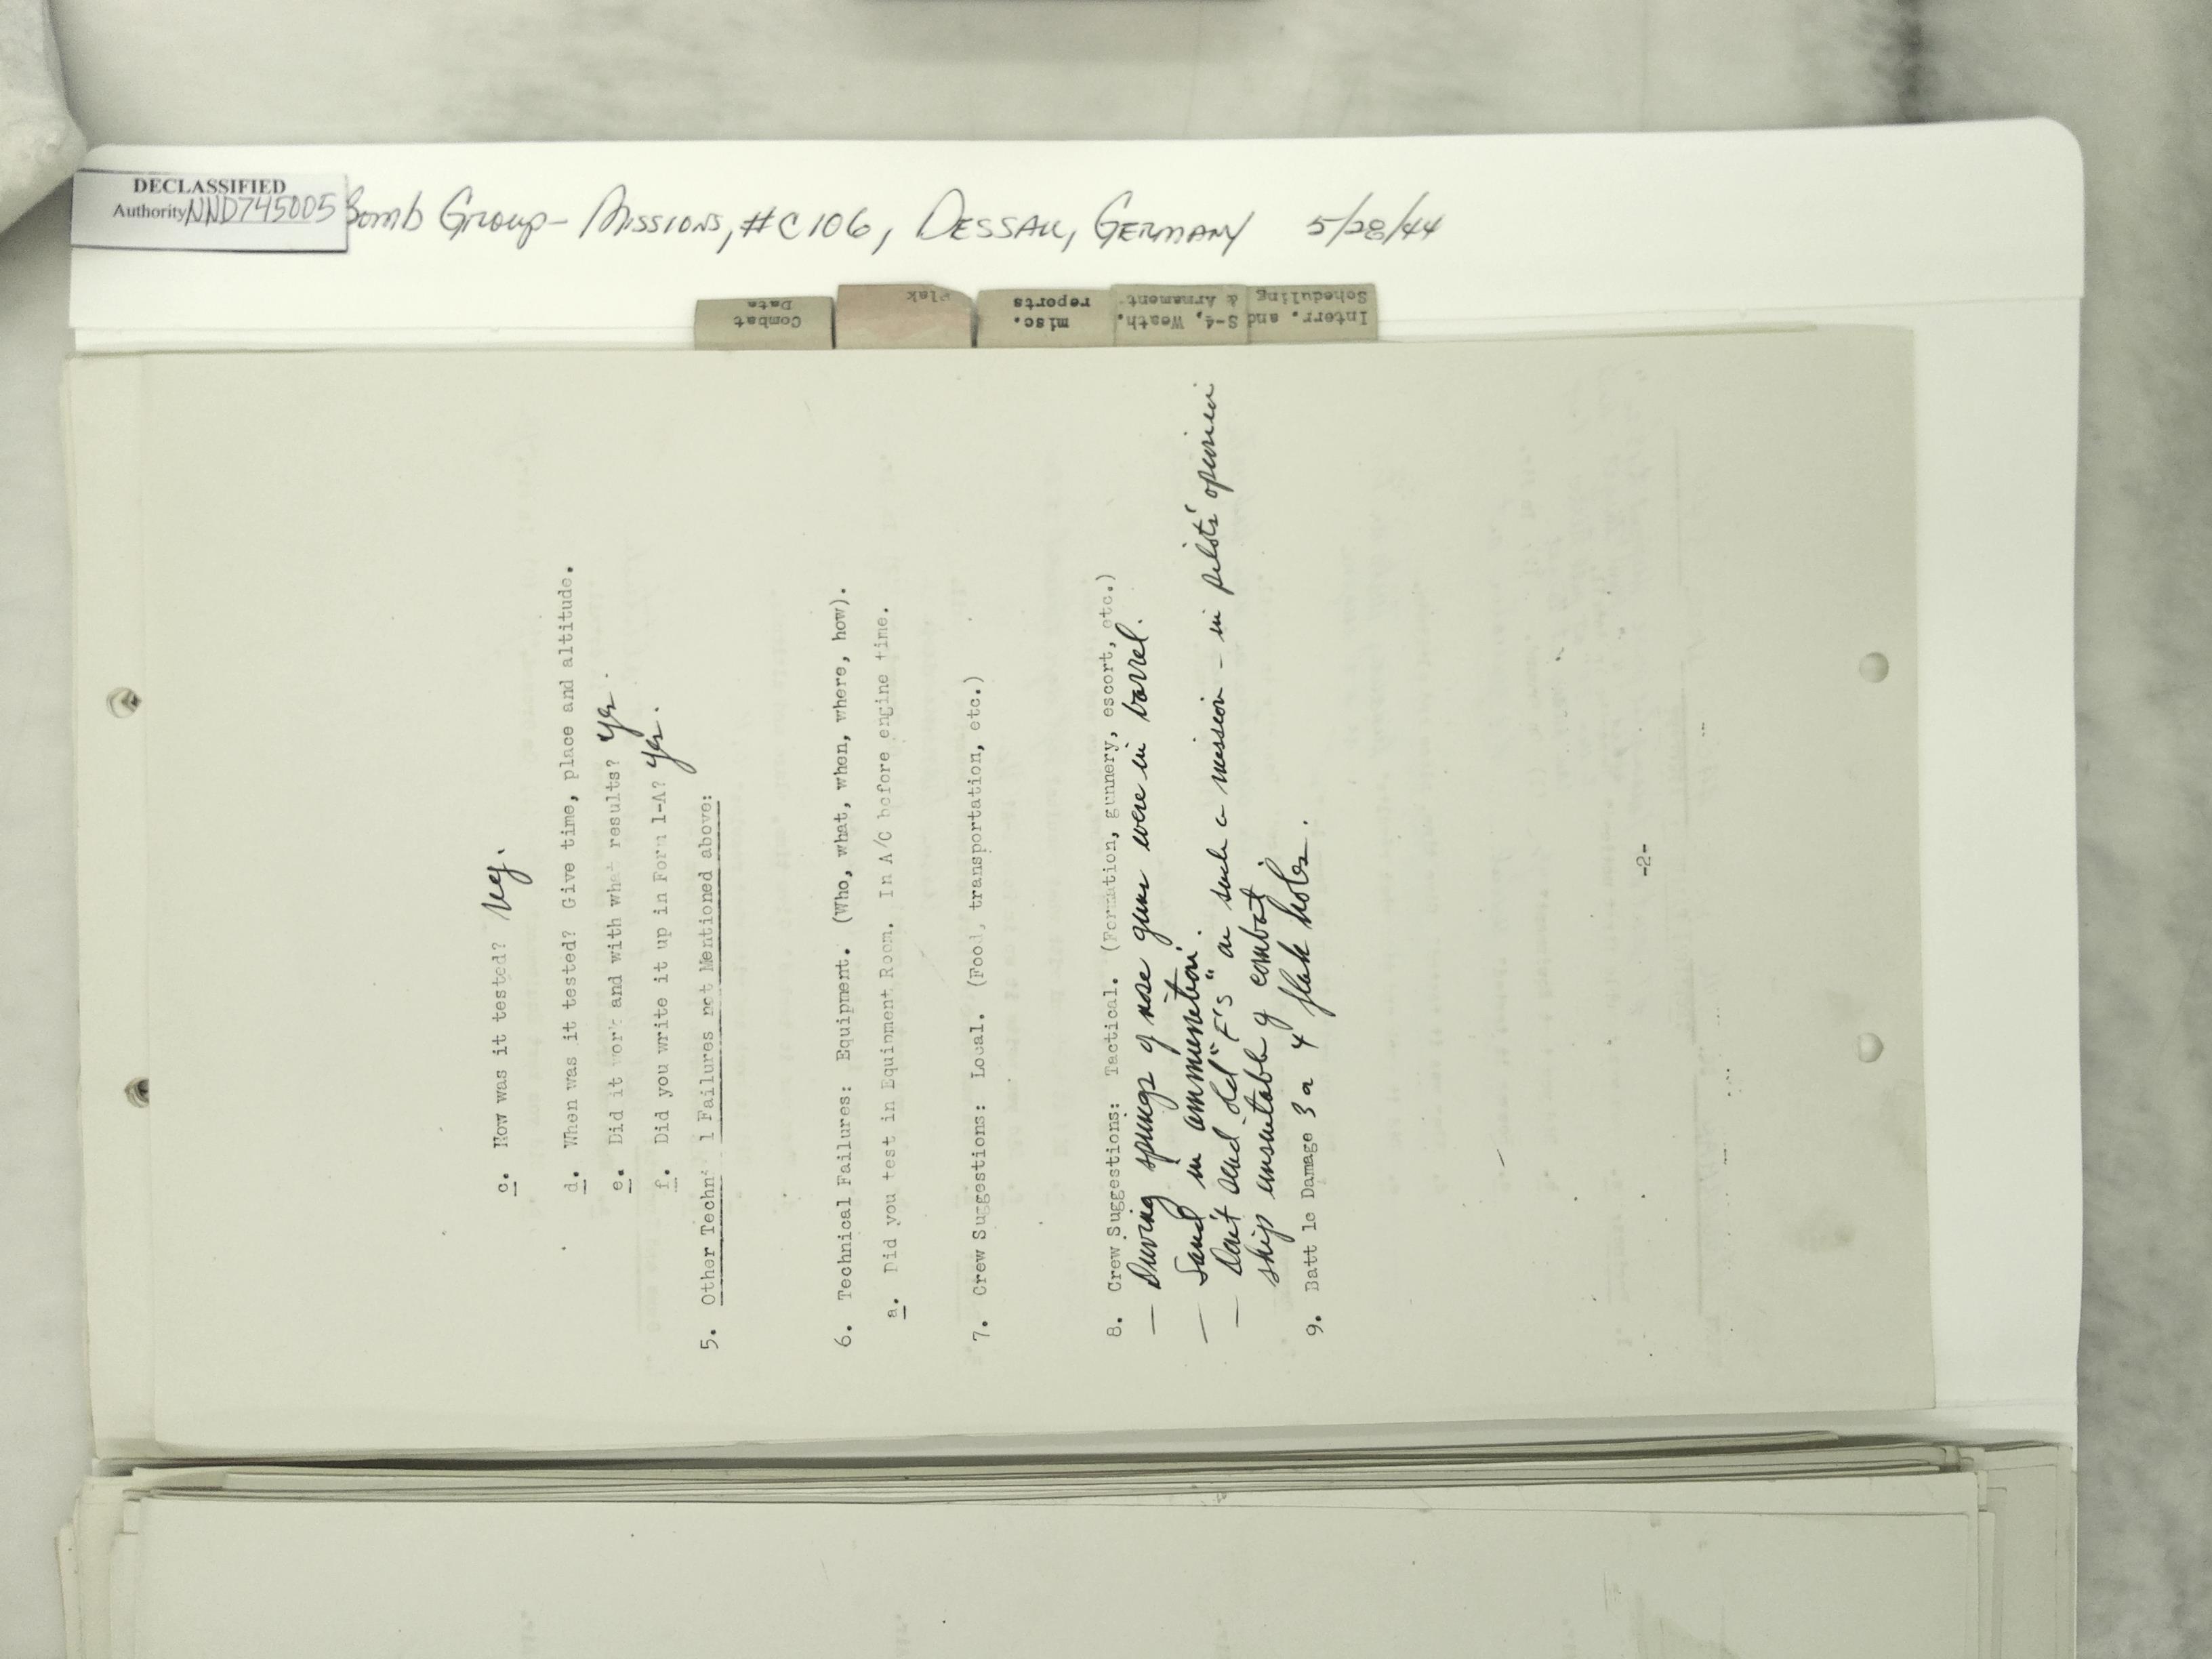 DECLASSIFIED
Authority NND745005
Bomb Group - Missions, #C106, Dessau, Germany 5/28/44
Combat
Data
Flak
misc.
reports
S-4, Weath.
& Armament
Interr. and
Scheduling
c. How was it tested? Neg.
d. When was it tested? Give time, place and altitude.
e. Did it work and with what results? Yes.
f. Did you write it up in Form 1-A? Yes.
5. Other Techni l Failures not Mentioned above:
6. Technical Failures: Equipment. (Who, what, when, where, how).
a. Did you test in Equipment Room. In A/C before engine time.
7. Crew Suggestions: Local. (Food, transportation, etc.)
8. Crew Suggestions: Tactical. (Formation, gunnery, escort, etc.)
— Driving springs of nose guns were in barrel.
— Sand in ammunition.
— Don't send old "F's" on such a mission - in pilots' opinion
ship unsuitable of combat
9. Batt le Damage 3 or 4 flak holes.
-2-